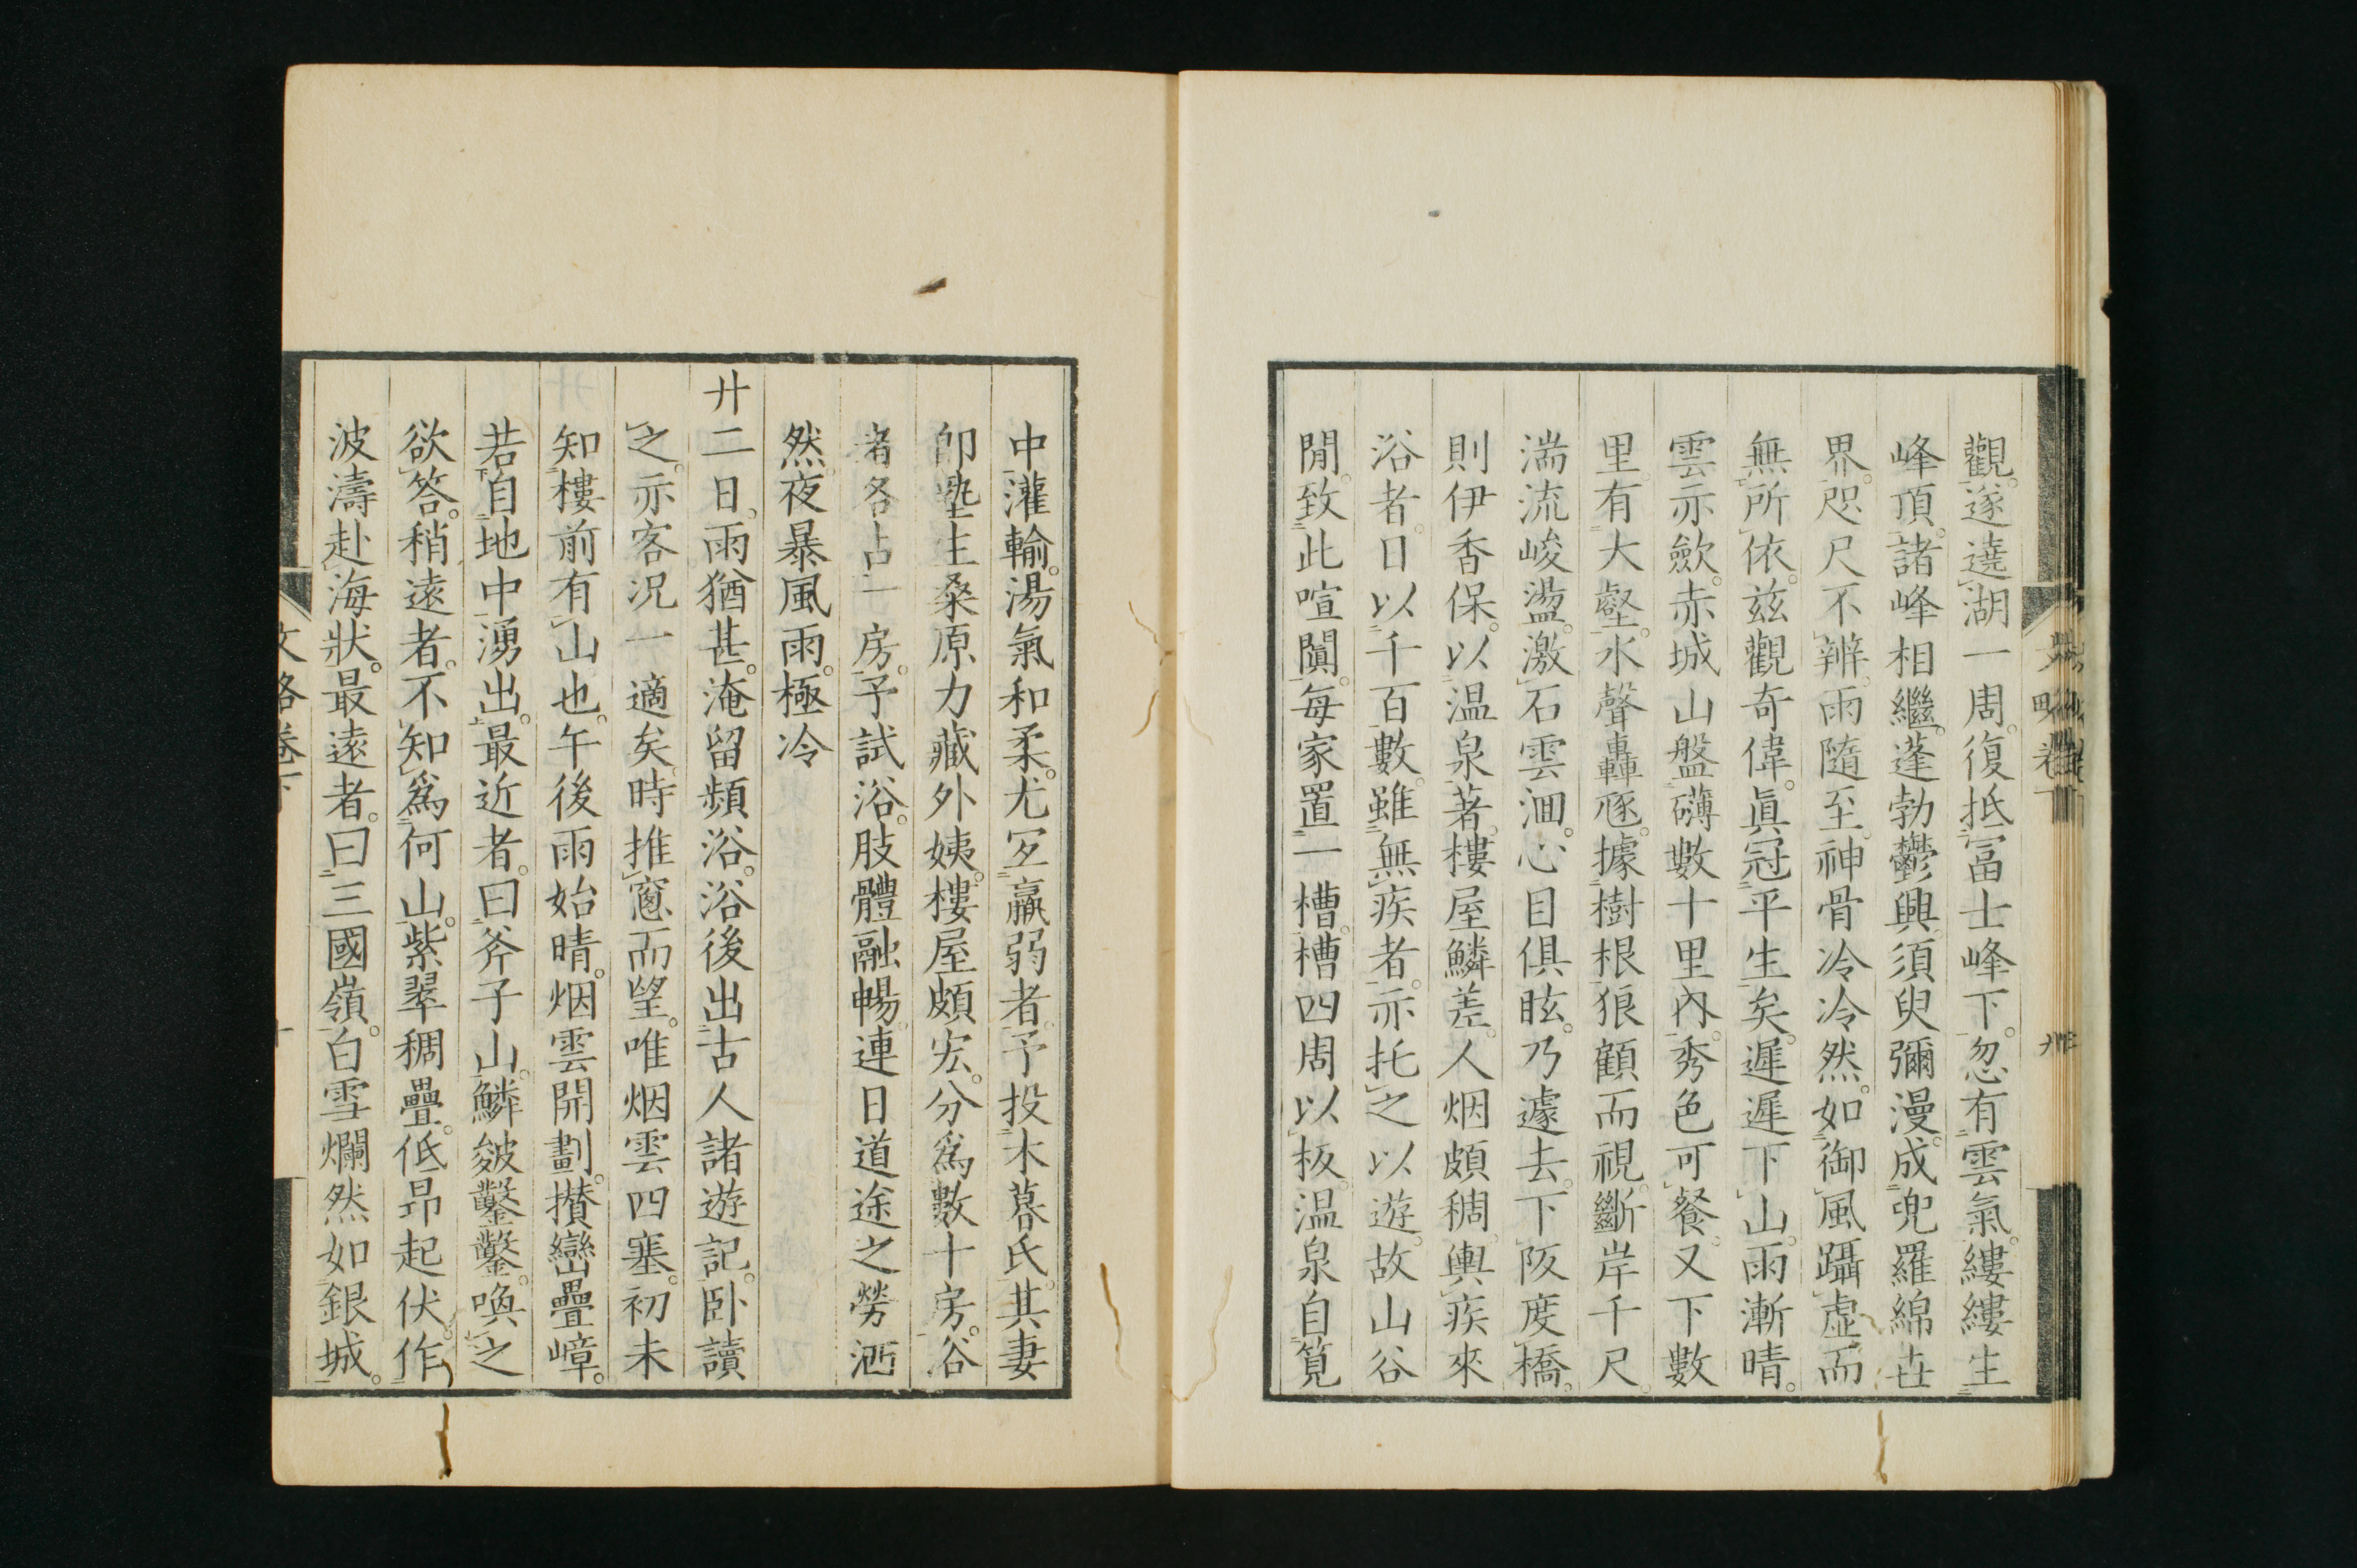 觀。遂遶湖一周。復抵富士峰下。忽有雲氣。縷縷生
峰頂。諸峰相繼。蓬勃鬱興。須臾彌漫。成兜羅綿世
界。咫尺不辨。雨隨至。神骨冷冷然。如御風躡虛。而
無所依。茲觀奇偉。眞冠平生矣。遲遲下山。雨漸晴。
雲亦歛。赤城山盤礴數十里內。秀色可餐。又下數
里。有大壑。水聲轟豗。據樹根狼顧而視。斷岸千尺。
湍流峻盪。激石雲洄。心目俱眩。乃遽去。下阪度橋。
則伊香保。以温泉著。樓屋鱗差。人烟頗稠。輿疾來
浴者。日以千百數。雖無疾者。亦托之以遊。故山谷
閒。致此喧闐。每家置一槽。槽四周以板。温泉自筧
中灌輸。湯氣和柔。尤宜羸弱者。予投木暮氏。其妻
卽塾生桑原力藏外姨。樓屋頗宏。分爲數十房。浴
者各占一房。予試浴。肢體融暢。連日道途之勞洒
然。夜暴風雨。極冷
廿二日。雨猶甚。淹留頻浴。浴後出古人諸遊記。臥讀
之。亦客況一適矣。時推窓而望。唯烟雲四塞。初未
知樓前有山也。午後雨始晴。烟雲開劃。攢巒疊嶂。
若自地中湧出。最近者。曰斧子山。鱗皴鑿鑿。喚之
欲答。稍遠者。不知爲何山。紫翠稠疊。低昻起伏。作
波濤赴海狀。最遠者。曰三國嶺。白雪爛然如銀城。
文略卷下
十